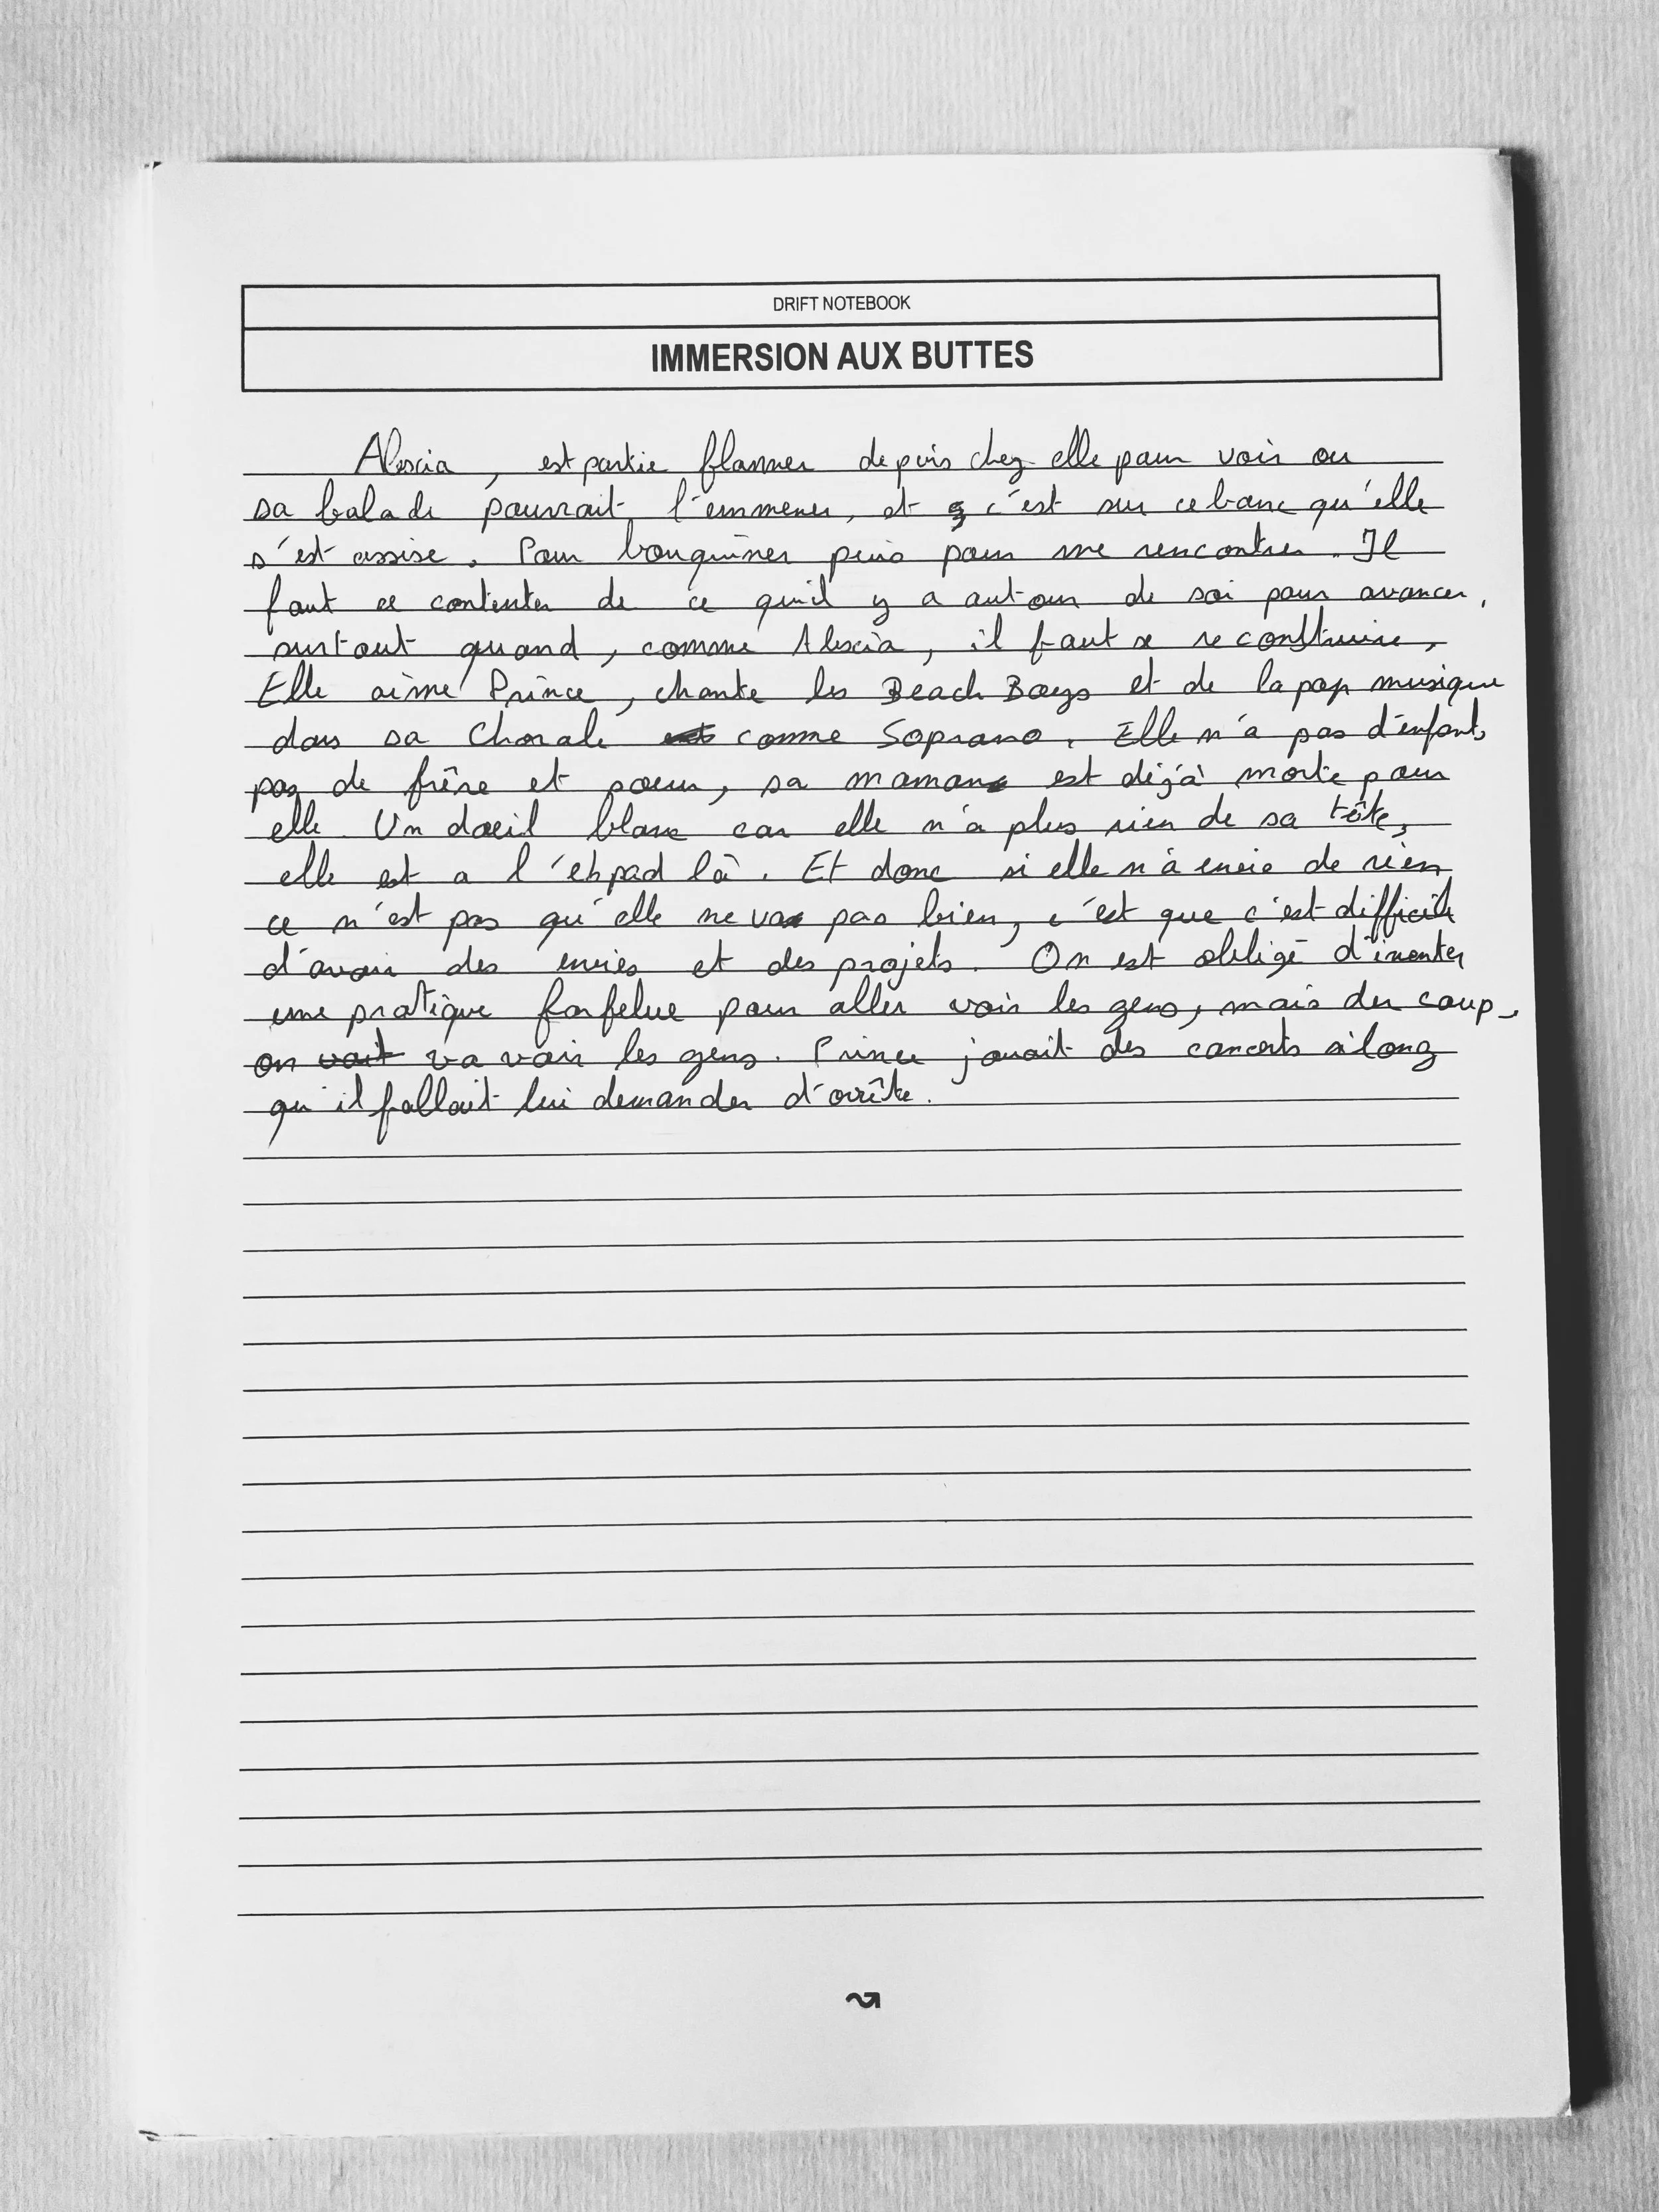 DRIFT NOTEBOOK
IMMERSION AUX BUTTES
Alexia, est partie flanner depuis chez elle pour voir ou
sa balade pourrait l'emmener, et c'est sur ce banc qu'elle
s'est assise. Pour bouquiner puis pour me rencontrer. Il
faut ce contenter de ce qu'il y a autour de soi pour avancer,
surtout quand, comme Alexia, il faut se reconstruire,
Elle aime Prince, chante les Beach Boys et de la pop musique
dans sa Chorale comme Soprano. Elle n'a pas d'enfant,
pas de frêre et soeur, sa maman est déjà morte pour
elle. Un daeil blanc car elle n'a plus rien de sa tête,
elle est a l'ehpad là. Et donc si elle n'à envie de rien
ce n'est pas qu'elle ne va pas bien, c'est que c'est difficile
d'avoir des envies et des projets. On est obligé d'inventer
une pratique farfelue pour aller voir les gens, mais du coup,
on vait va voir les gens. Prince jouait des concerts si long
qu'il fallait lui demander d'arrête.